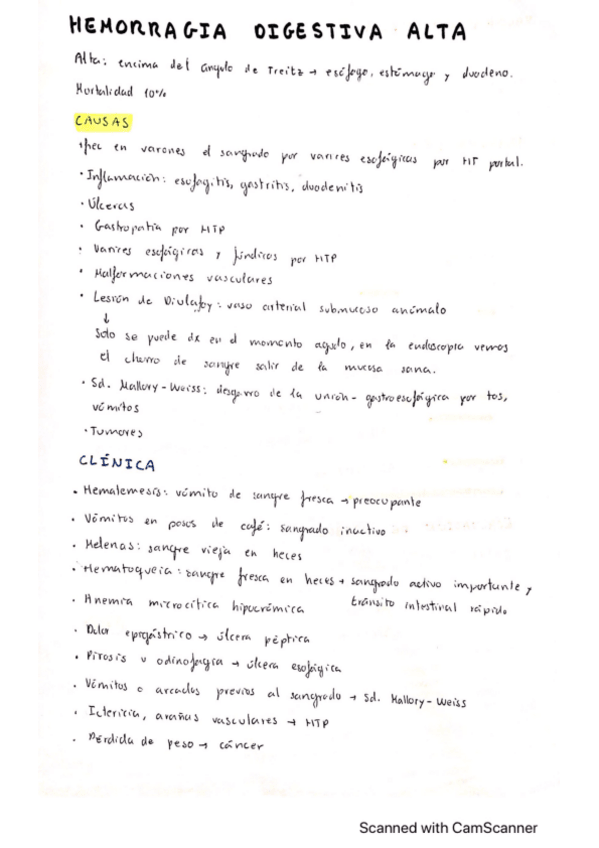 HEMORRAGIA DIGESTIVA ALTA
Alta: encima del ángulo de Treitz → esófago, estómago y duodeno.
Mortalidad 10%
CAUSAS
+frec en varones el sangrado por varices esofágicas por HT portal.
· Inflamación: esofagitis, gastritis, duodenitis
· Úlceras
· Gastropatía por HTP
· Varices esofágicas y fúndicas por HTP
· Malformaciones vasculares
· Lesión de Diulafoy: vaso arterial submucoso anómalo
↓
Solo se puede dx en el momento agudo, en la endoscopia vemos
el chorro de sangre salir de la mucosa sana.
· Sd. Mallory-Weiss: desgarro de la unión-gastroesofágica por tos,
vómitos
· Tumores
CLÍNICA
· Hematemesis: vómito de sangre fresca → preocupante
· Vómitos en posos de café: sangrado inactivo
· Melenas: sangre vieja en heces
· Hematoquecia: sangre fresca en heces → sangrado activo importante y
tránsito intestinal rápido
· Anemia microcítica hipocrómica
· Dolor epigástrico → úlcera péptica
· Pirosis u odinofagia → úlcera esofágica
· Vómitos o arcadas previos al sangrado → Sd. Mallory-Weiss
· Ictericia, arañas vasculares → HTP
· Pérdida de peso → cáncer
Scanned with CamScanner